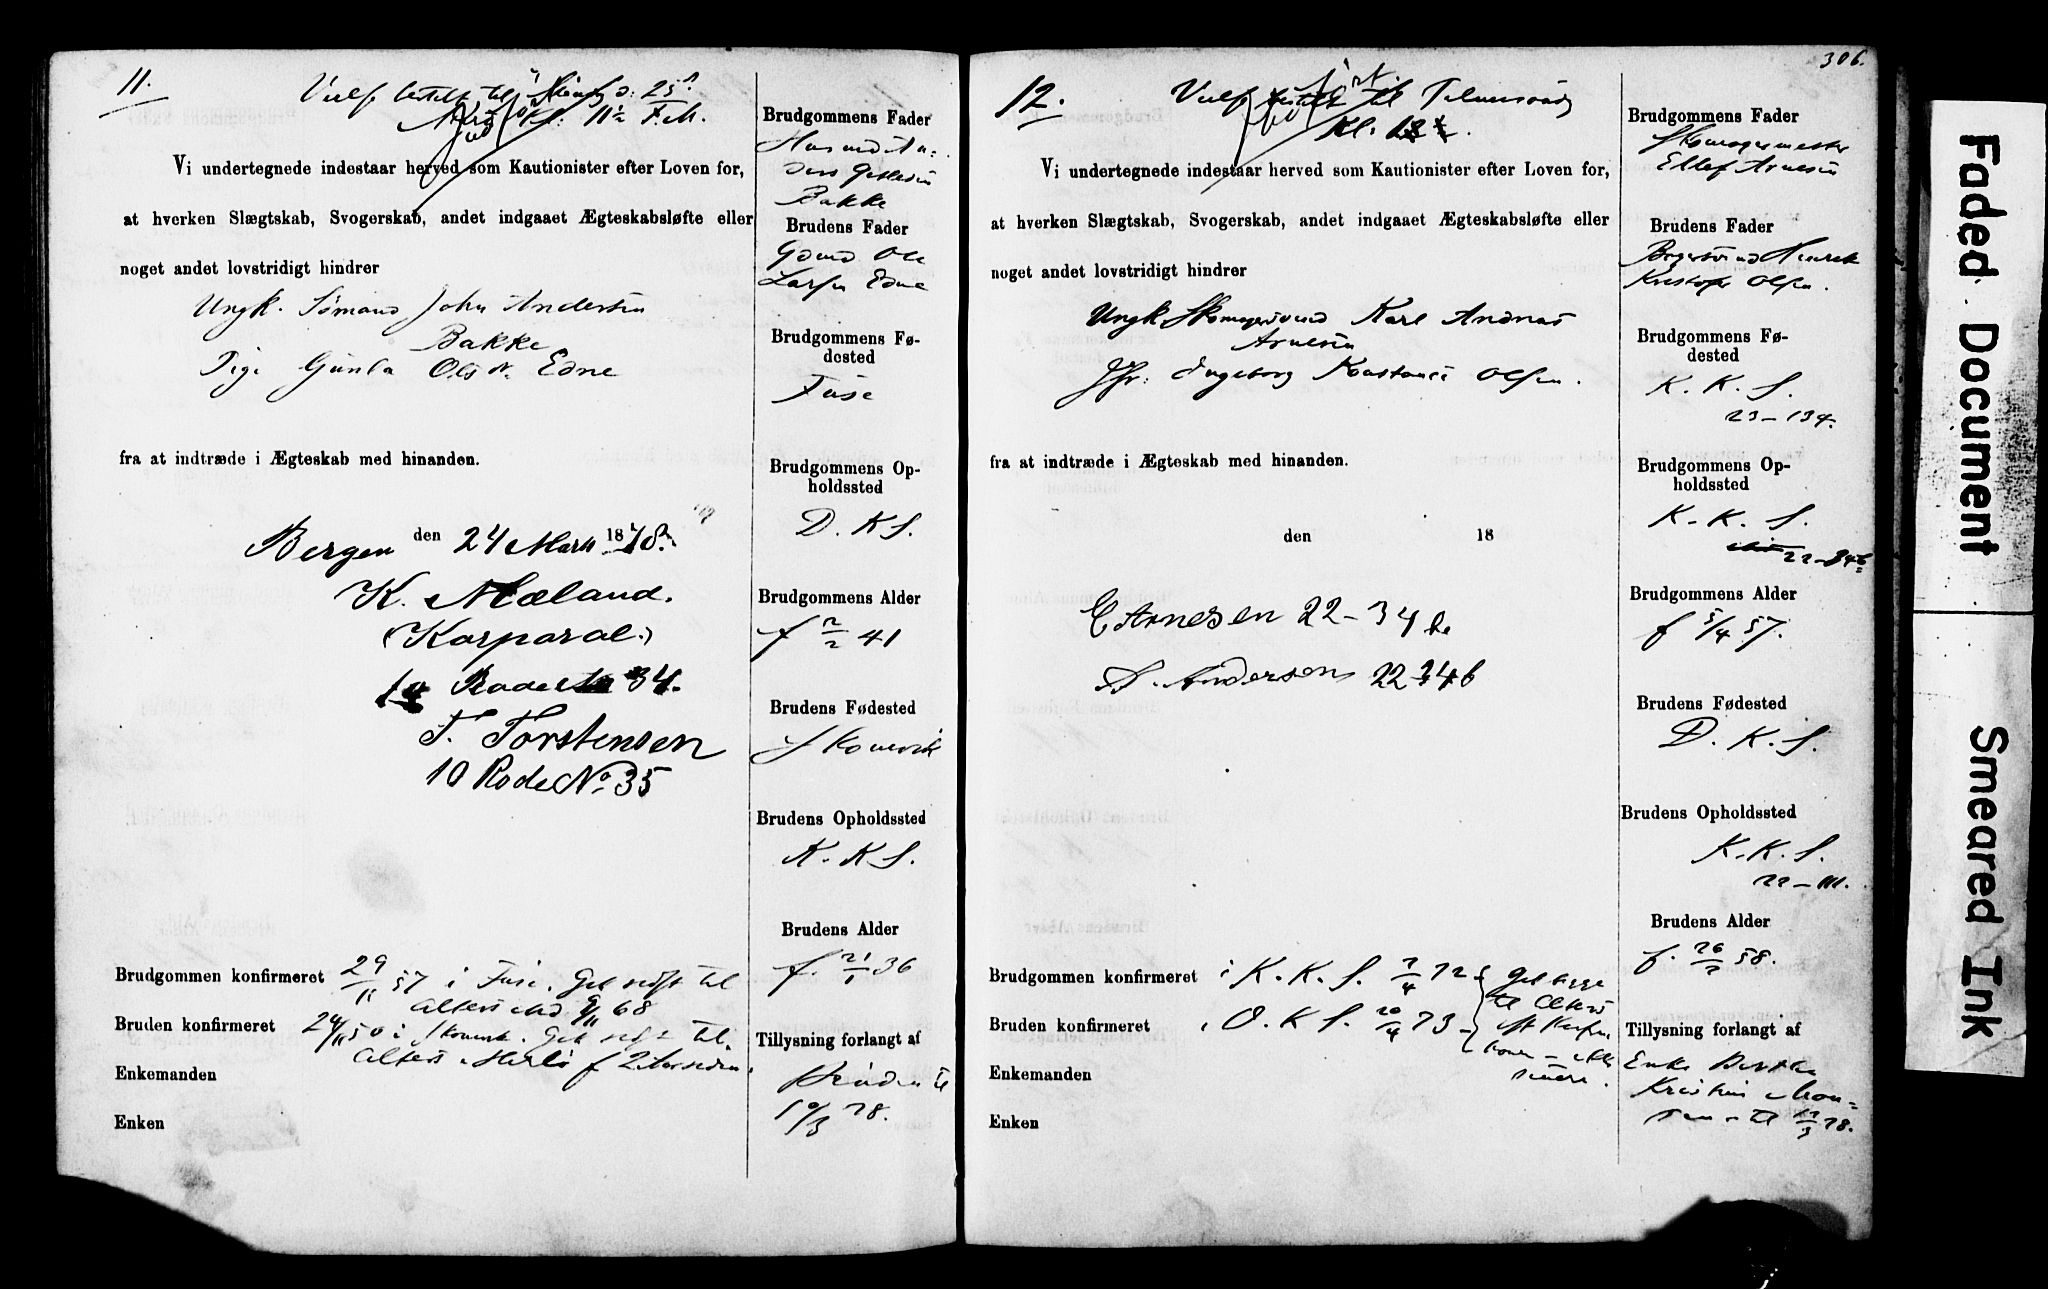 11.
Vielse bestilt til
Kl: 11½ F.M.
Vi undertegnede indestaar herved som Kautionister efter Loven for,
at hverken Slægtskab, Svogerskab, andet indgaaet Ægteskabsløfte eller
noget andet lovstridigt hindrer
Ungk. Sømand John Andersen
Bakke
Pige Gunla Olsdr. Edne
fra at indtræde i Ægteskab med hinanden.
Bergen den 24 Marts 1878.
K. Mæland.
(Korporal.)
Rode 34.
T. Torstensen
10 Rode No. 35
Brudgommen konfirmeret 29/11 57 i Fuse. Geb sidst til
Alters 68
Bruden konfirmeret 24/11 50 i Skonevik. Geb sidst til
Alters i Herlø f 2 Aar siden.
Enkemanden
Enken
Brudgommens Fader
Husmd An-
ders
Bakke
Brudens Fader
Gdmd Ole
Larsen Edne
Brudgommens Fø-
dested
Fuse
Brudgommens Op-
holdssted
D. K S.
Brudgommens Alder
f 2/2 41
Brudens Fødested
Skonevik
Brudens Opholdssted
K. K S.
Brudens Alder
f. 21/1 36
Tillysning forlangt af
Bruden til
10/3 78.
306.
12.
Vielse til
Kl.
Vi undertegnede indestaar herved som Kautionister efter Loven for,
at hverken Slægtskab, Svogerskab, andet indgaaet Ægteskabsløfte eller
noget andet lovstridigt hindrer
Ungk Skomagersvend Karl Andreas
Arnesen
Jfr: Ingeborg Konstance Olsen.
fra at indtræde i Ægteskab med hinanden.
den 18
E Arnesen 22-34 b
A. Andersen 22-34 b
Brudgommen konfirmeret i K. K. S. 7/4 72 Geb begge
til Alters
Bruden konfirmeret i D. K S. 20/4 73 eft Konfir.
ikke
Enkemanden senere.
Enken
Brudgommens Fader
Skomagermester
Ellef Arnesen
Brudens Fader
Henrik
Kristofer Olsen.
Brudgommens Fø-
dested
K. K. S.
23-134.
Brudgommens Op-
holdssted
K. K. S.
22-34b
Brudgommens Alder
f 5/4 57.
Brudens Fødested
D. K. S.
Brudens Opholdssted
K. K. S.
22-111.
Brudens Alder
f. 26/2 58.
Tillysning forlangt af
Enke Berthe
Kristine Mon-
sen til 17/3 78.
Faded Document
Smeared Ink